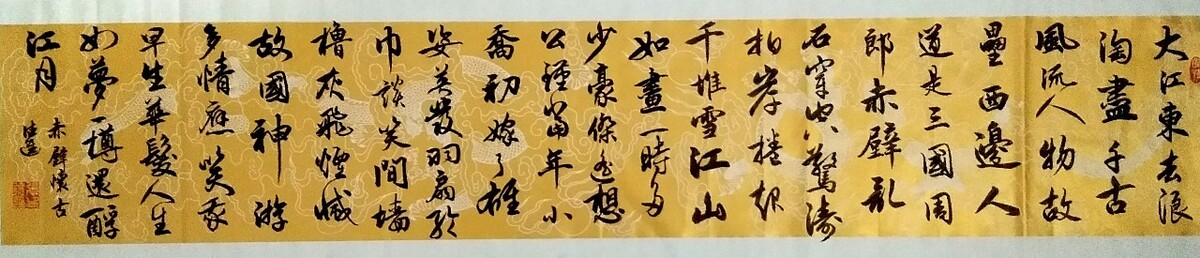 大江東去浪
淘盡千古
風流人物故
壘西邊人
道是三國周
郎赤壁亂
石穿空驚濤
拍岸捲起
千堆雪江山
如畫一時多
少豪傑遙想
公瑾當年小
喬初嫁了雄
姿英發羽扇綸
巾談笑間檣
櫓灰飛煙滅
故國神游
多情應笑我
早生華髮人生
如夢一樽還酹
江月
赤壁懷古